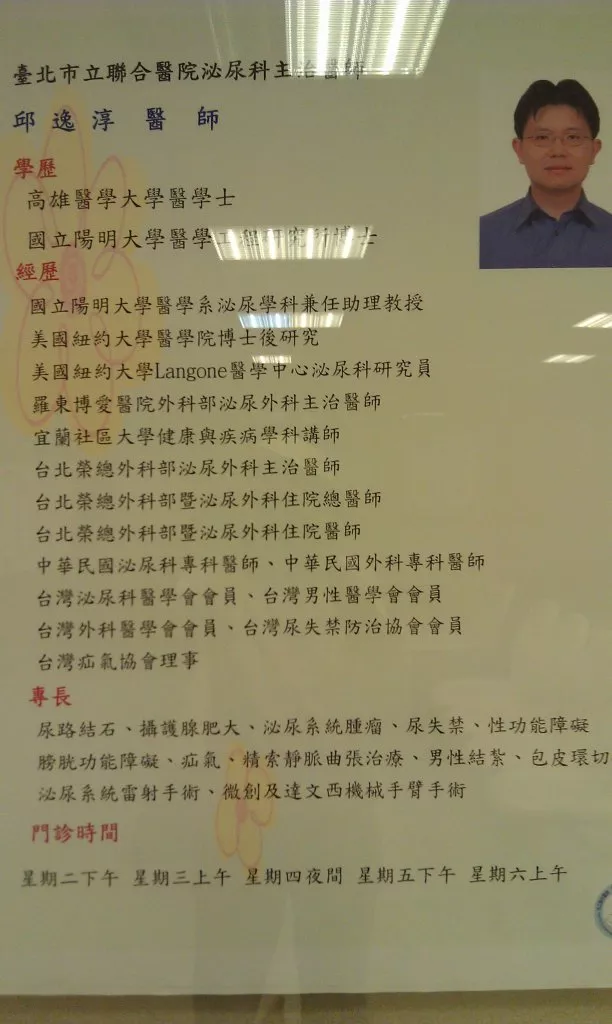 臺北市立聯合醫院泌尿科主治醫師
邱逸淳 醫師
學歷
高雄醫學大學醫學士
國立陽明大學醫學工程研究所博士
經歷
國立陽明大學醫學系泌尿學科兼任助理教授
美國紐約大學醫學院博士後研究
美國紐約大學Langone醫學中心泌尿科研究員
羅東博愛醫院外科部泌尿外科主治醫師
宜蘭社區大學健康與疾病學科講師
台北榮總外科部泌尿外科主治醫師
台北榮總外科部暨泌尿外科住院總醫師
台北榮總外科部暨泌尿外科住院醫師
中華民國泌尿科專科醫師、中華民國外科專科醫師
台灣泌尿科醫學會會員、台灣男性醫學會會員
台灣外科醫學會會員、台灣尿失禁防治協會會員
台灣疝氣協會理事
專長
尿路結石、攝護腺肥大、泌尿系統腫瘤、尿失禁、性功能障礙
膀胱功能障礙、疝氣、精索靜脈曲張治療、男性結紮、包皮環切
泌尿系統雷射手術、微創及達文西機械手臂手術
門診時間
星期二下午 星期三上午 星期四夜間 星期五下午 星期六上午